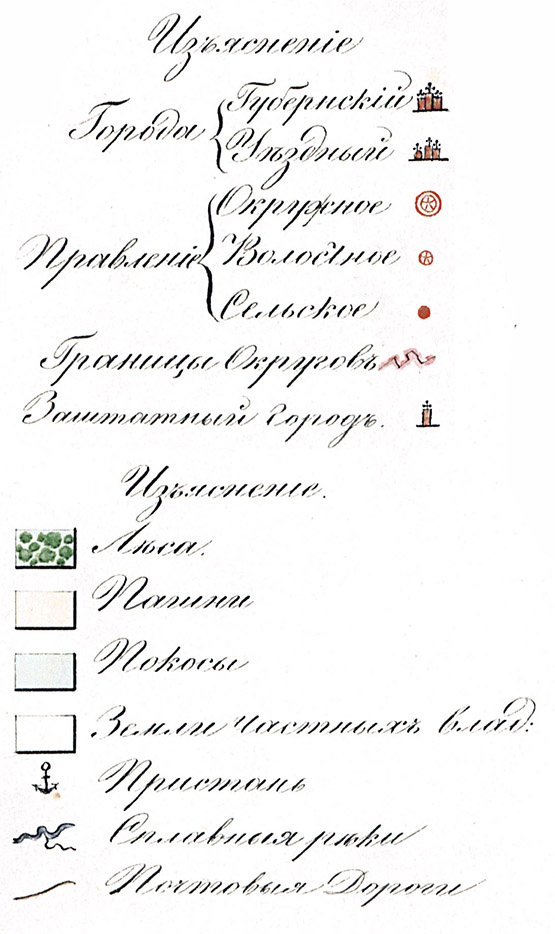 Изъясненіе
Города
Губернскій
Уѣздный
Правленіе
Окружное
Волостное
Сельское
Границы Округовъ
Заштатный Городъ.
Изъясненіе.
Лѣса.
Пашни
Покосы
Земли частныхъ влад:
Пристань
Сплавныя рѣки
Почтовыя Дороги